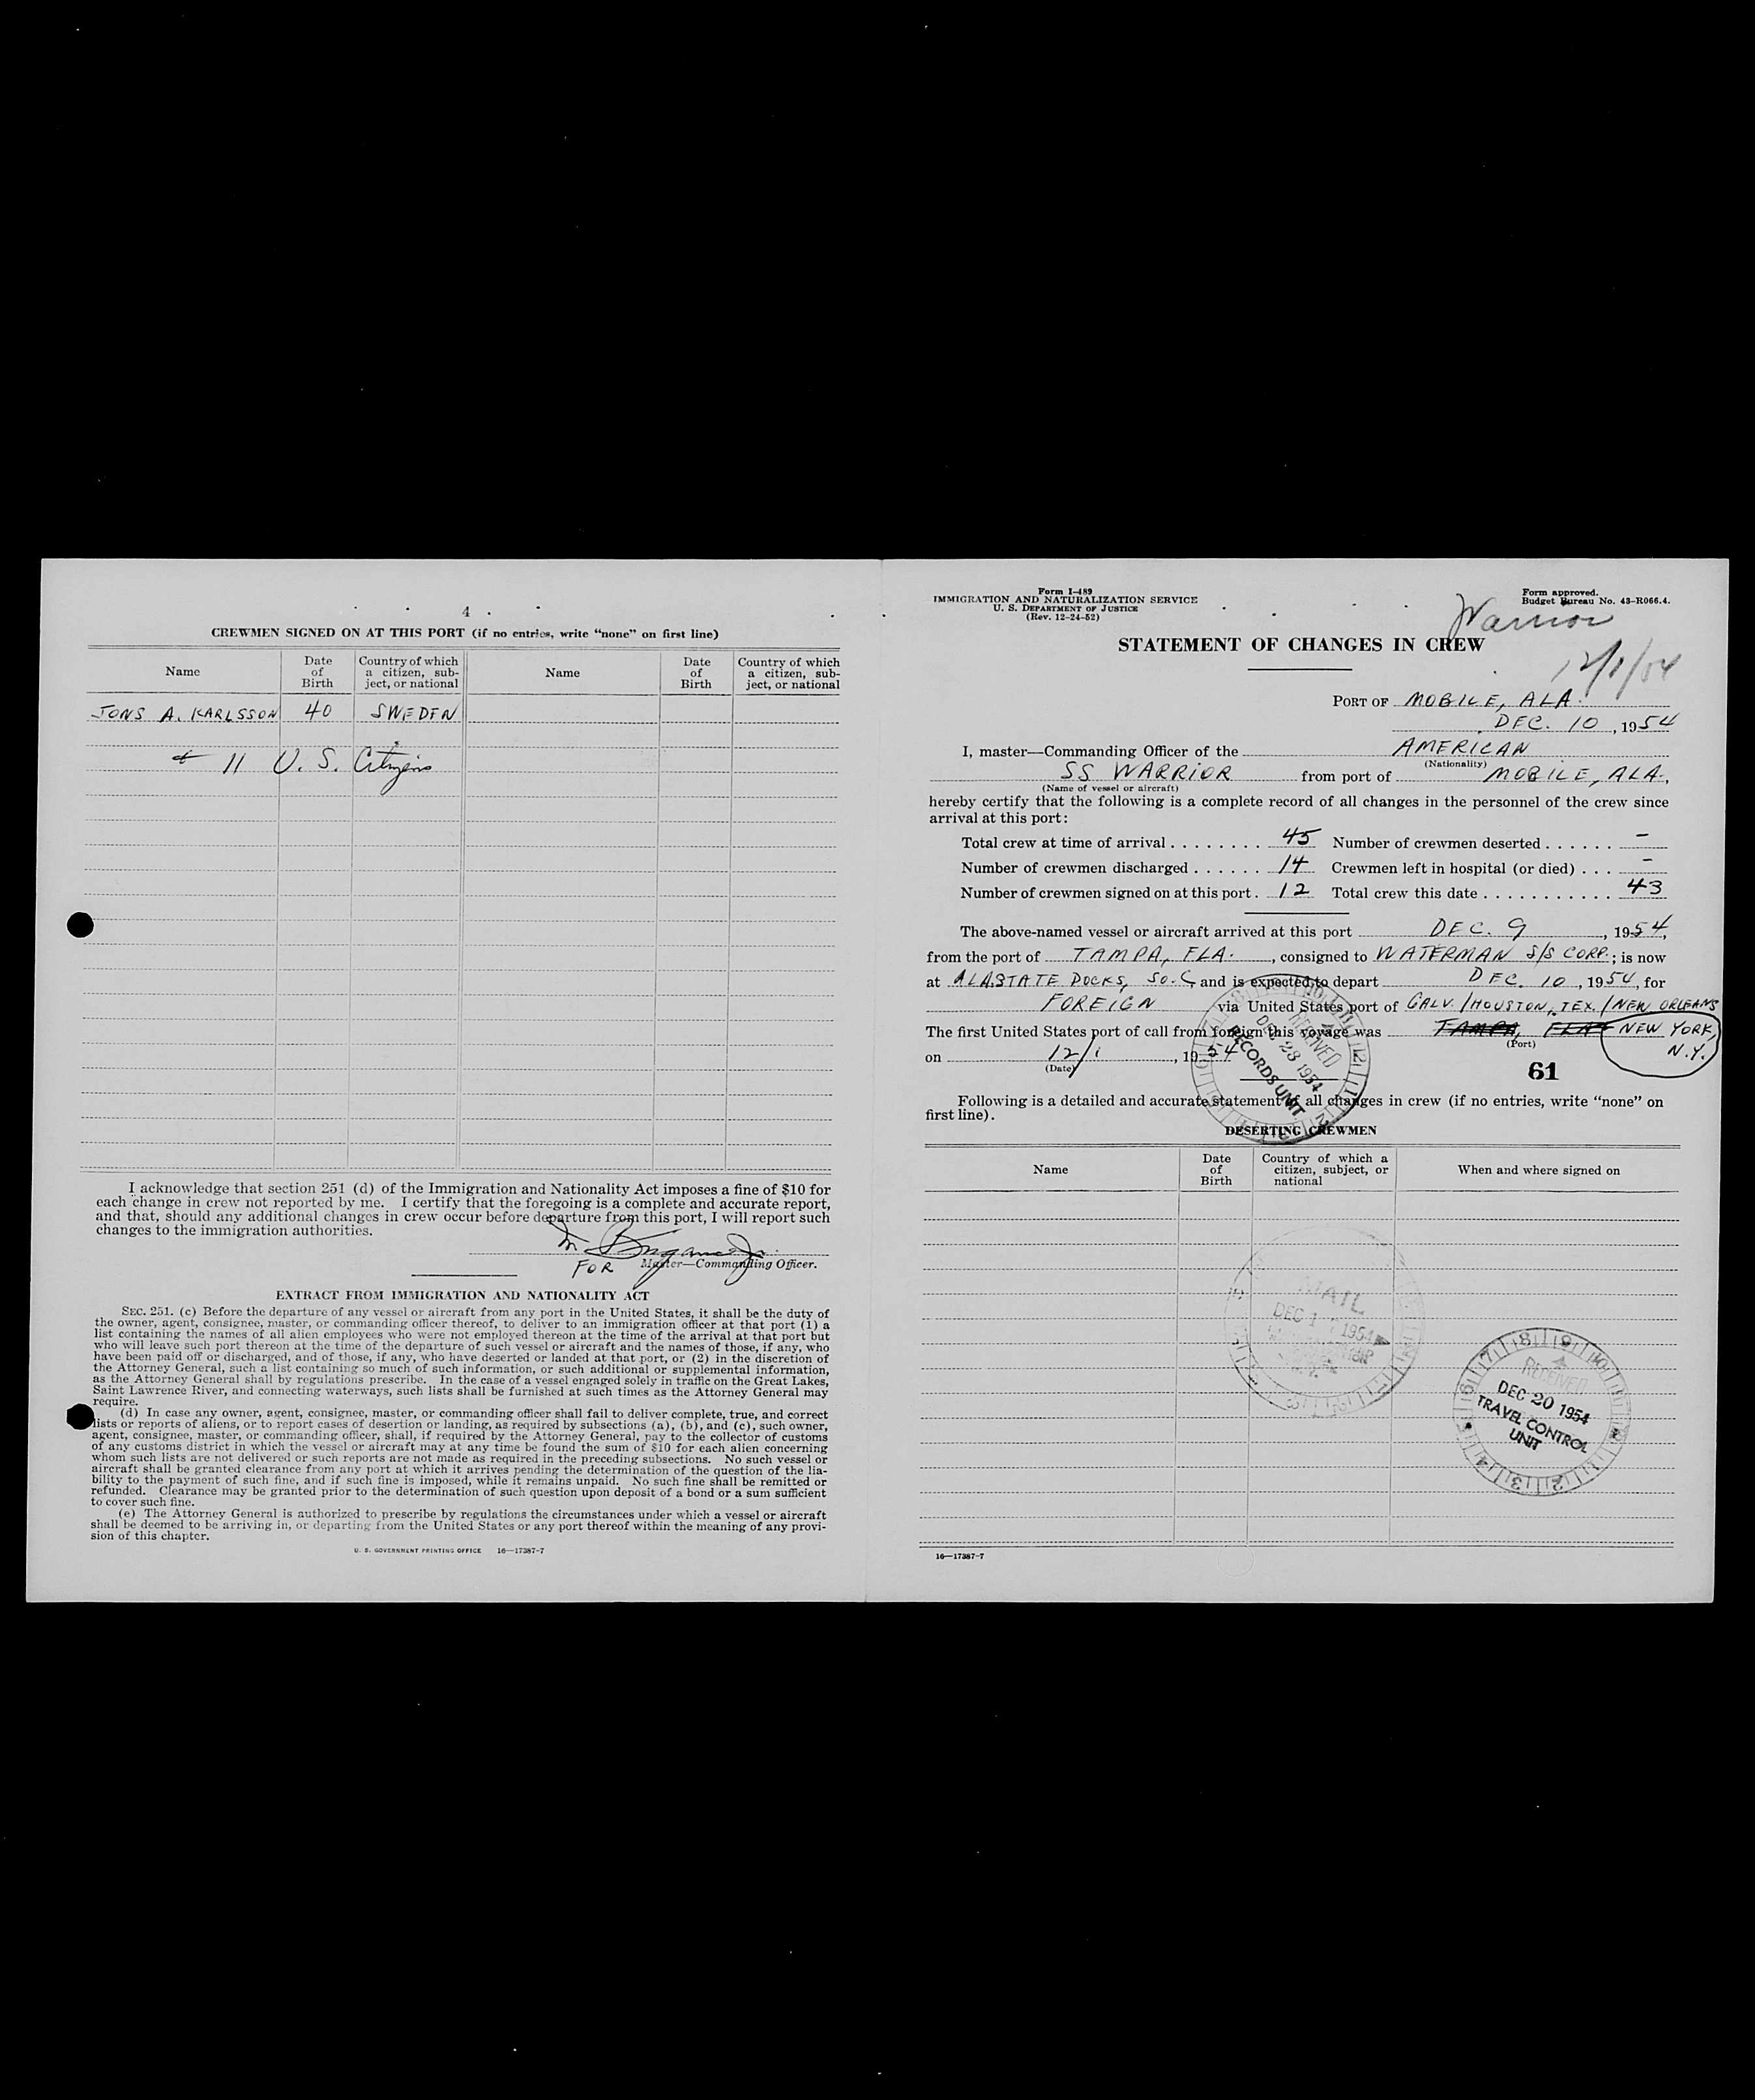 4
CREWMEN SIGNED ON AT THIS PORT (if no entries, write “none” on first line)
Name Date of Birth Country of which a citizen, subject, or national Name Date of Birth Country of which a citizen, subject, or national
JONS A. KARLSSON 40 SWEDEN
+ 11 U. S. Citizens
I acknowledge that section 251 (d) of the Immigration and Nationality Act imposes a fine of $10 for
each change in crew not reported by me. I certify that the foregoing is a complete and accurate report,
and that, should any additional changes in crew occur before departure from this port, I will report such
changes to the immigration authorities.
FOR Master—Commanding Officer.
EXTRACT FROM IMMIGRATION AND NATIONALITY ACT
SEC. 251. (c) Before the departure of any vessel or aircraft from any port in the United States, it shall be the duty of
the owner, agent, consignee, master, or commanding officer thereof, to deliver to an immigration officer at that port (1) a
list containing the names of all alien employees who were not employed thereon at the time of the arrival at that port but
who will leave such port thereon at the time of the departure of such vessel or aircraft and the names of those, if any, who
have been paid off or discharged, and of those, if any, who have deserted or landed at that port, or (2) in the discretion of
the Attorney General, such a list containing so much of such information, or such additional or supplemental information,
as the Attorney General shall by regulations prescribe. In the case of a vessel engaged solely in traffic on the Great Lakes,
Saint Lawrence River, and connecting waterways, such lists shall be furnished at such times as the Attorney General may
require.
(d) In case any owner, agent, consignee, master, or commanding officer shall fail to deliver complete, true, and correct
lists or reports of aliens, or to report cases of desertion or landing, as required by subsections (a), (b), and (c), such owner,
agent, consignee, master, or commanding officer, shall, if required by the Attorney General, pay to the collector of customs
of any customs district in which the vessel or aircraft may at any time be found the sum of $10 for each alien concerning
whom such lists are not delivered or such reports are not made as required in the preceding subsections. No such vessel or
aircraft shall be granted clearance from any port at which it arrives pending the determination of the question of the lia-
bility to the payment of such fine, and if such fine is imposed, while it remains unpaid. No such fine shall be remitted or
refunded. Clearance may be granted prior to the determination of such question upon deposit of a bond or a sum sufficient
to cover such fine.
(e) The Attorney General is authorized to prescribe by regulations the circumstances under which a vessel or aircraft
shall be deemed to be arriving in, or departing from the United States or any port thereof within the meaning of any provi-
sion of this chapter.
U. S. GOVERNMENT PRINTING OFFICE 16—17387-7
Form I-489
IMMIGRATION AND NATURALIZATION SERVICE
U. S. DEPARTMENT OF JUSTICE
(Rev. 12-24-52)
Form approved.
Budget Bureau No. 43-R066.4.
Warrior
STATEMENT OF CHANGES IN CREW
12/1/54
PORT OF MOBILE, ALA.
DEC. 10, 1954
I, master—Commanding Officer of the AMERICAN
(Nationality)
SS WARRIOR from port of MOBILE, ALA.,
(Name of vessel or aircraft)
hereby certify that the following is a complete record of all changes in the personnel of the crew since
arrival at this port:
Total crew at time of arrival 45 Number of crewmen deserted –
Number of crewmen discharged 14 Crewmen left in hospital (or died) –
Number of crewmen signed on at this port 12 Total crew this date 43
The above-named vessel or aircraft arrived at this port DEC. 9, 1954,
from the port of TAMPA, FLA., consigned to WATERMAN S/S CORP.; is now
at ALA. STATE DOCKS, SO. C, and is expected to depart DEC. 10, 1954, for
FOREIGN via United States port of GALV./HOUSTON, TEX./NEW ORLEANS
The first United States port of call from foreign this voyage was TAMPA, FLA NEW YORK,
(Port) N.Y.
on 12/1, 1954
(Date)
61
RECEIVED
DEC 23 1954
RECORDS UNIT
Following is a detailed and accurate statement of all changes in crew (if no entries, write “none” on
first line).
DESERTING CREWMEN
Name Date of Birth Country of which a citizen, subject, or national When and where signed on
MAIL
DEC 1 1954
RECEIVED
DEC 20 1954
TRAVEL CONTROL
UNIT
16—17387-7